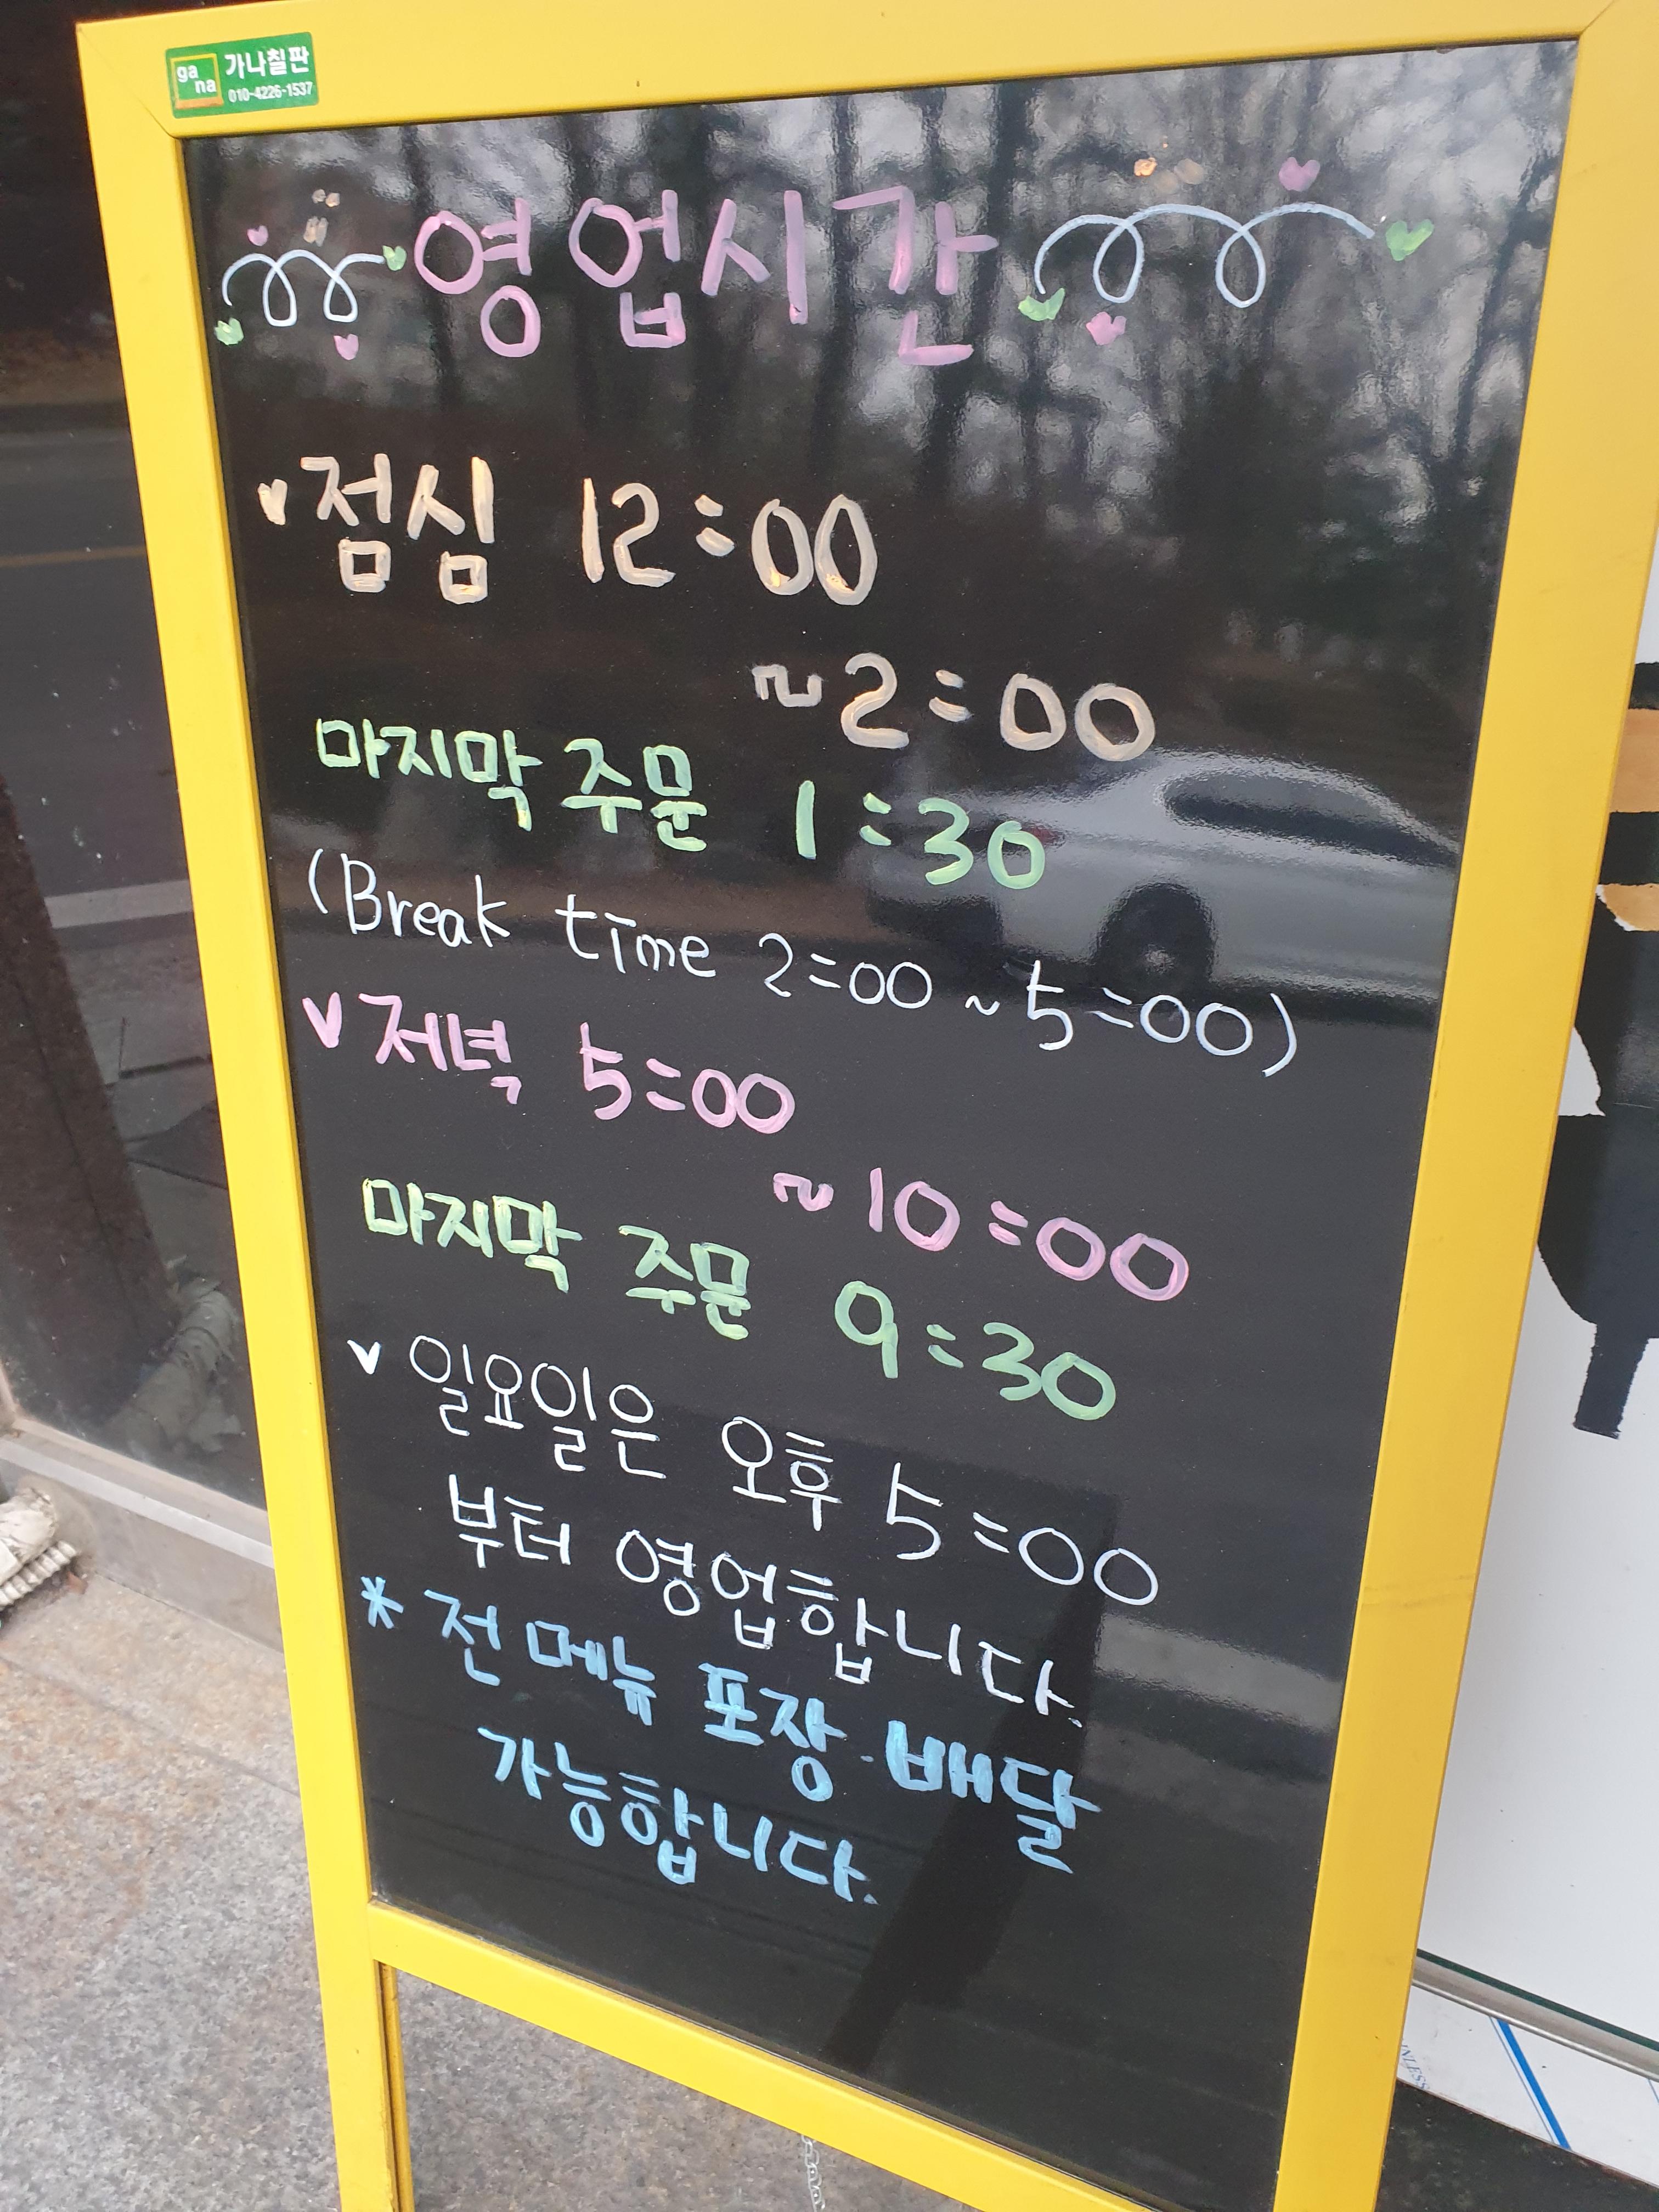 ga
na
가나칠판
010-4226-1537
영업시간
v 점심 12:00
~2:00
마지막 주문 1:30
(Break time 2:00 ~ 5:00)
v 저녁 5:00
~10:00
마지막 주문 9:30
v 일요일은 오후 5:00
부터 영업합니다.
* 전메뉴 포장·배달
가능합니다.